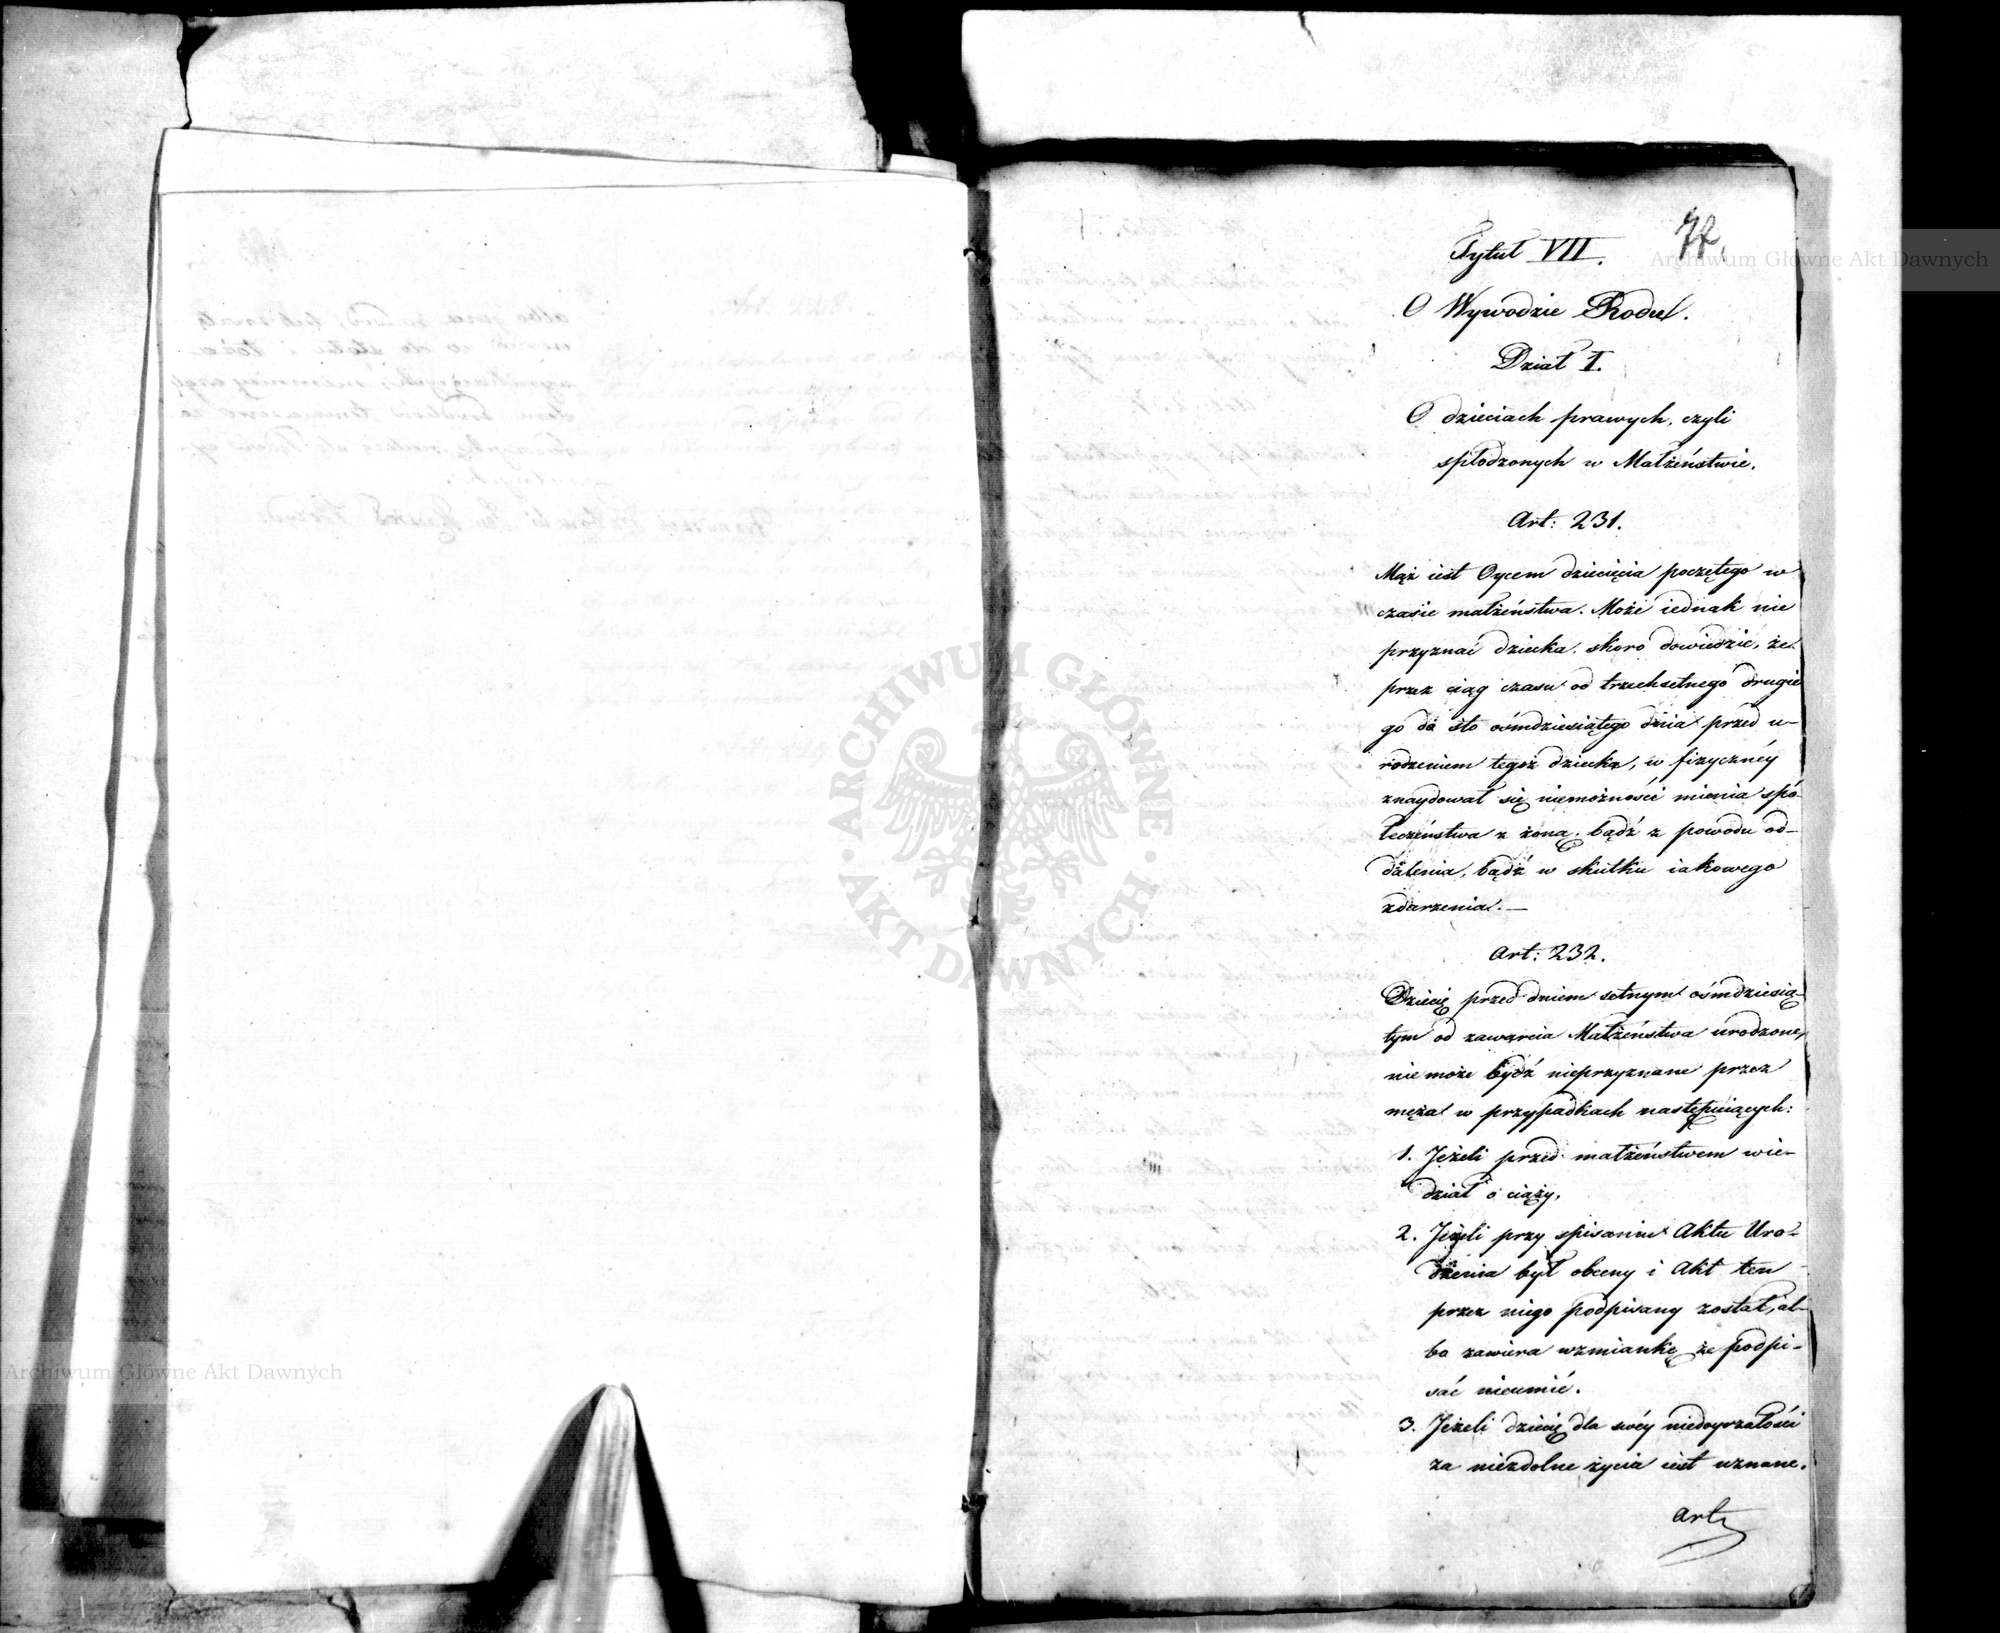 72.
Tytuł VII.
O Wywodzie Rodu.
Dział I.
O dzieciach prawych, czyli
spłodzonych w Małżeństwie.
Art: 231.
Mąż iest Oycem dziecięcia poczętego w
czasie małżeństwa. Może iednak nie
przyznać dziecka, skoro dowiedzie, że
przez ciąg czasu od trzechsetnego drugie
go do sto ośmdziesiątego dnia przed u-
rodzeniem tegoż dziecka, w fizycznéy
znaydował się niemożności mienia spó-
łeczeństwa z żoną, bądź z powodu od-
dalenia, bądź w skutku iakowego
zdarzenia.—
Art: 232.
Dziecię przed dniem setnym ośmdziesią-
tym od zawarcia Małżeństwa urodzone,
nie może bydź nieprzyznane przez
męża w przypadkach następuiących:
1. Jeżeli przed małżeństwem wie-
dział o ciąży,
2. Jeżeli przy spisaniu Aktu Uro-
dzenia był obecny i Akt ten
przez niego podpisany został, al-
bo zawiera wzmiankę że podpi-
sać nieumié.
3. Jeżeli dziecię dla swéy niedoyrzałości
za niezdolne życia iest uznane.
Art:
Archiwum Główne Akt Dawnych
ARCHIWUM GŁÓWNE
· AKT DAWNYCH ·
Archiwum Główne Akt Dawnych